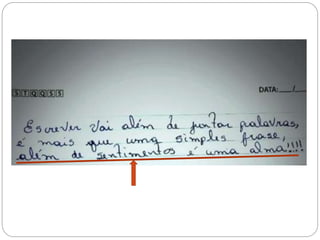 S T Q Q S S
DATA:___/__
Escrever vai além de juntar palavras,
é mais que uma simples frase,
além de sentimentos é uma alma!!!!